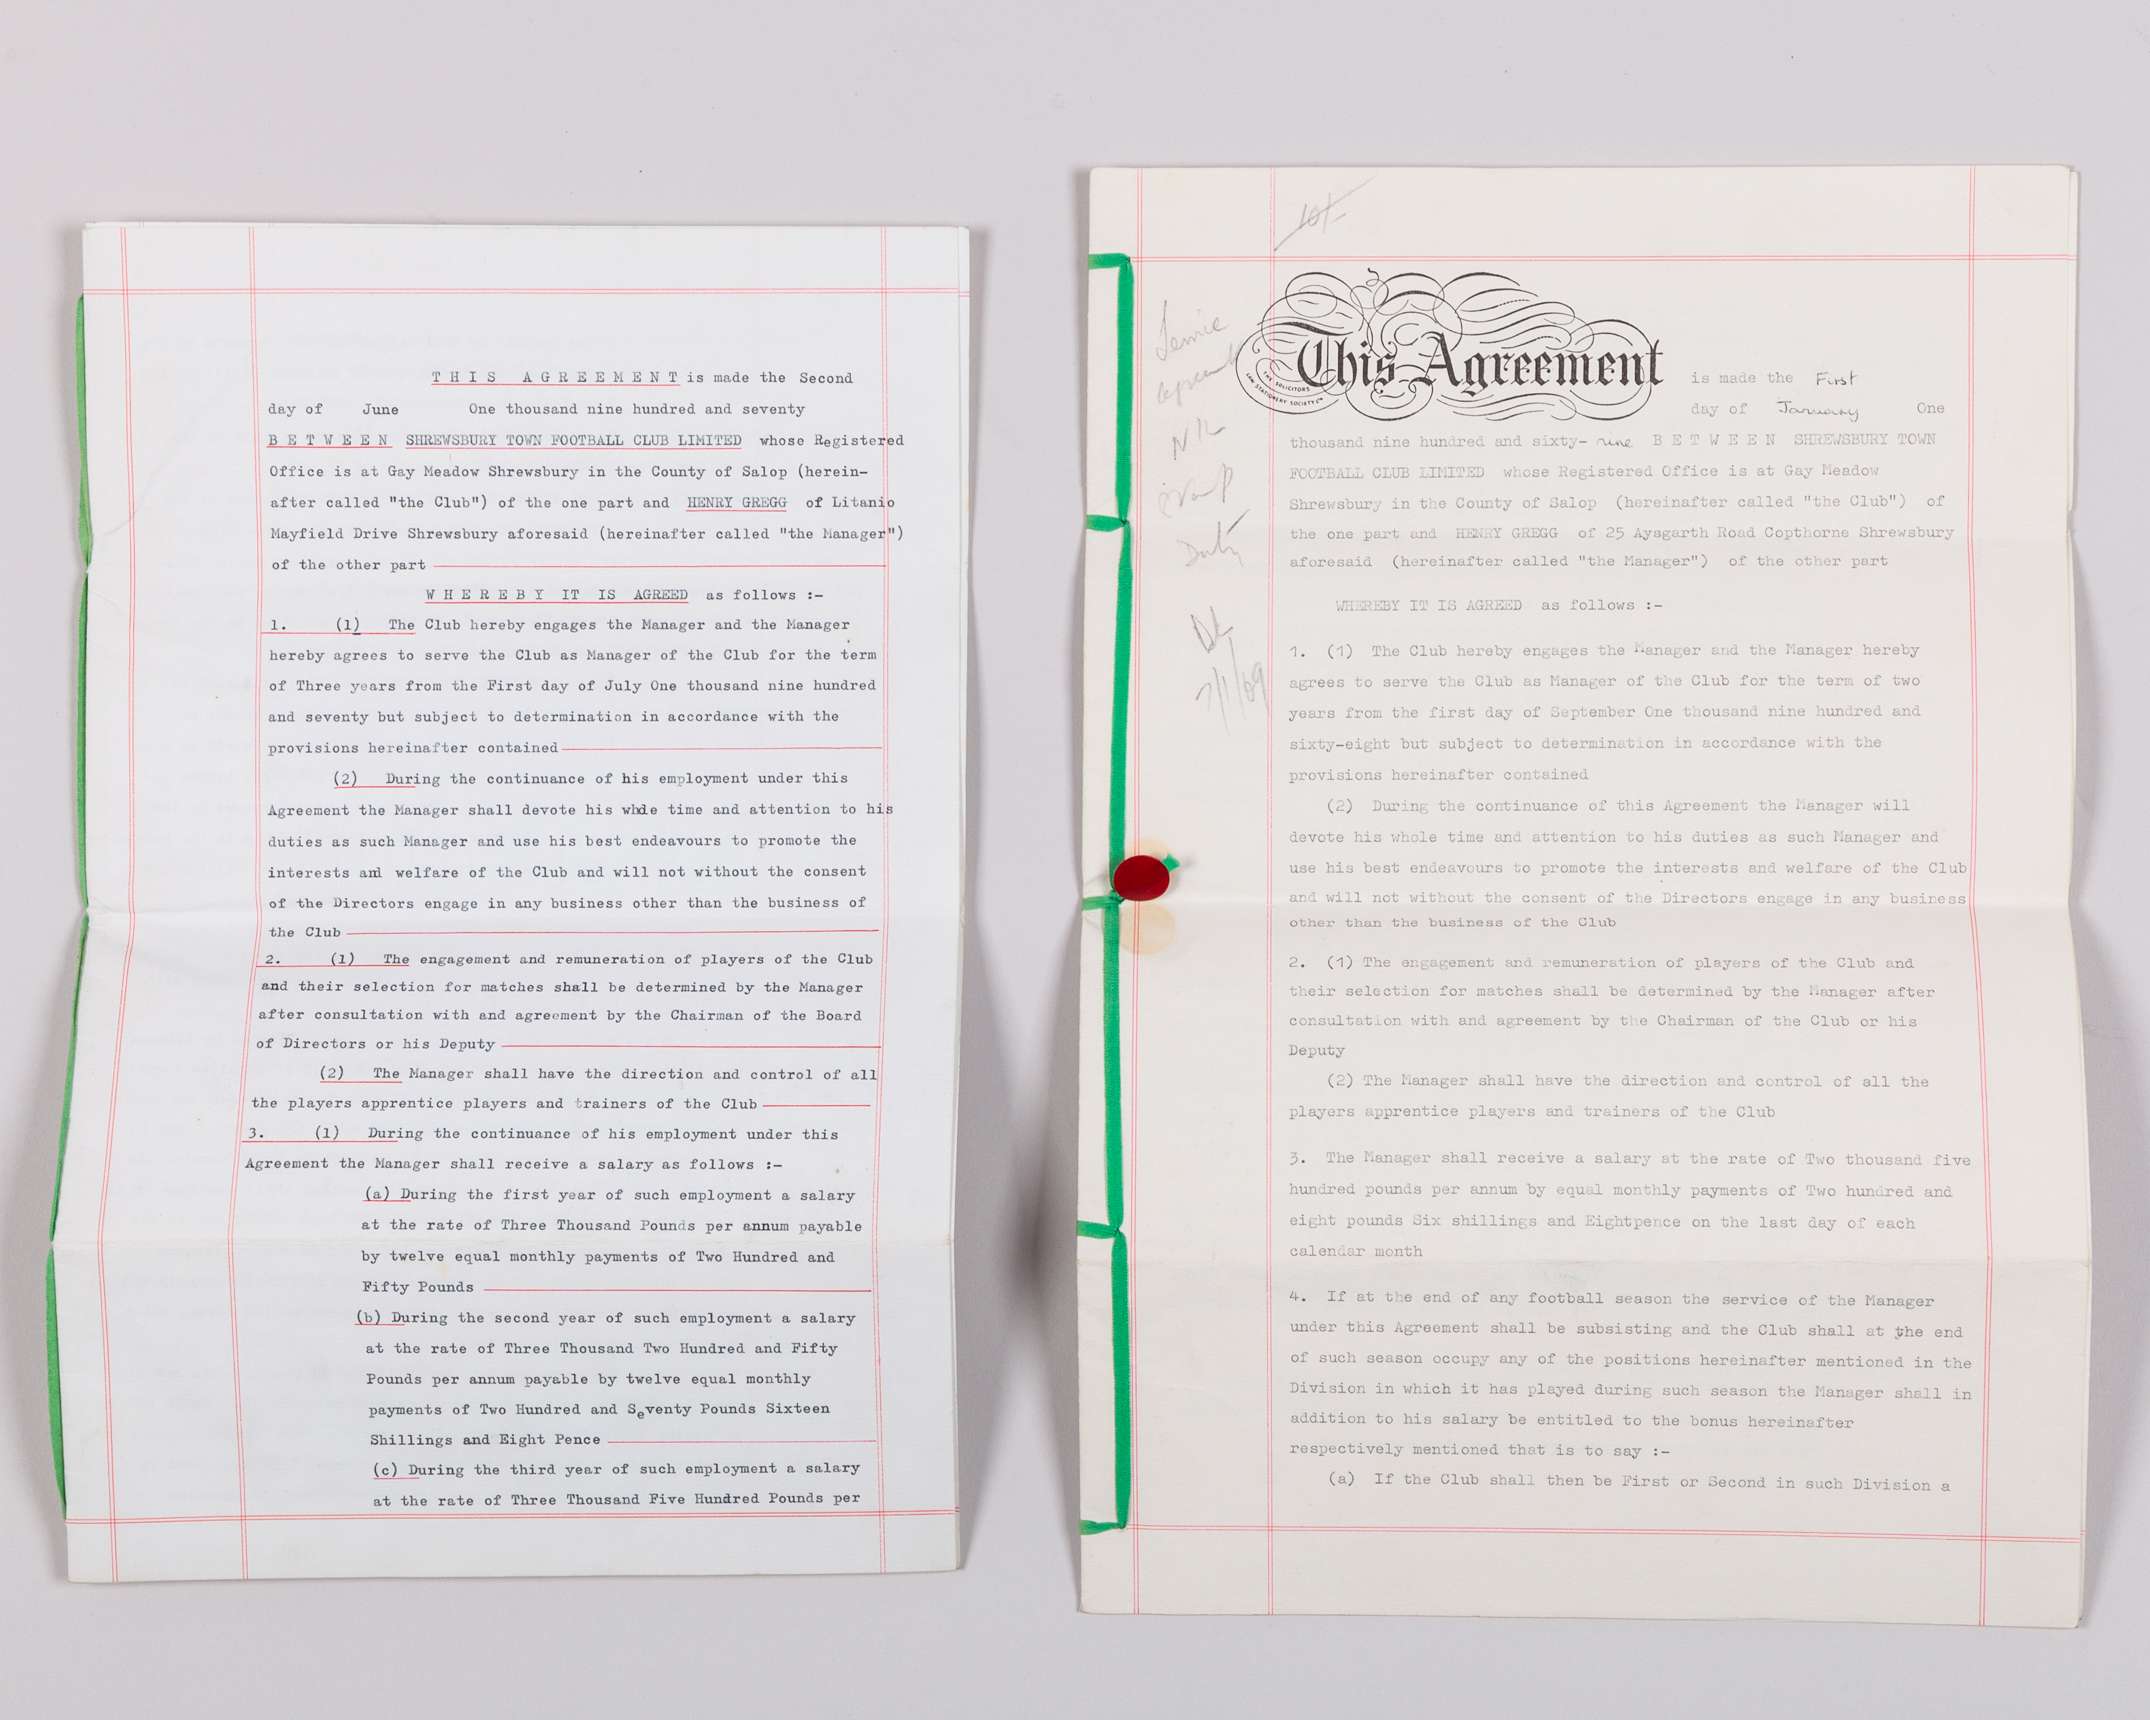 T H I S   A G R E E M E N T is made the Second
day of June One thousand nine hundred and seventy
B E T W E E N SHREWSBURY TOWN FOOTBALL CLUB LIMITED whose Registered
Office is at Gay Meadow Shrewsbury in the County of Salop (herein-
after called "the Club") of the one part and HENRY GREGG of Litanio
Mayfield Drive Shrewsbury aforesaid (hereinafter called "the Manager")
of the other part
W H E R E B Y IT IS AGREED as follows :-
1. (1) The Club hereby engages the Manager and the Manager
hereby agrees to serve the Club as Manager of the Club for the term
of Three years from the First day of July One thousand nine hundred
and seventy but subject to determination in accordance with the
provisions hereinafter contained
(2) During the continuance of his employment under this
Agreement the Manager shall devote his whole time and attention to his
duties as such Manager and use his best endeavours to promote the
interests and welfare of the Club and will not without the consent
of the Directors engage in any business other than the business of
the Club
2. (1) The engagement and remuneration of players of the Club
and their selection for matches shall be determined by the Manager
after consultation with and agreement by the Chairman of the Board
of Directors or his Deputy
(2) The Manager shall have the direction and control of all
the players apprentice players and trainers of the Club
3. (1) During the continuance of his employment under this
Agreement the Manager shall receive a salary as follows :-
(a) During the first year of such employment a salary
at the rate of Three Thousand Pounds per annum payable
by twelve equal monthly payments of Two Hundred and
Fifty Pounds
(b) During the second year of such employment a salary
at the rate of Three Thousand Two Hundred and Fifty
Pounds per annum payable by twelve equal monthly
payments of Two Hundred and Seventy Pounds Sixteen
Shillings and Eight Pence
(c) During the third year of such employment a salary
at the rate of Three Thousand Five Hundred Pounds per
10/-
Duty
7/1/69
This Agreement is made the First
THE SOLICITORS
LAW STATIONERY SOCIETY LTD
day of January One
thousand nine hundred and sixty- nine B E T W E E N SHREWSBURY TOWN
FOOTBALL CLUB LIMITED whose Registered Office is at Gay Meadow
Shrewsbury in the County of Salop (hereinafter called "the Club") of
the one part and HENRY GREGG of 25 Aysgarth Road Copthorne Shrewsbury
aforesaid (hereinafter called "the Manager") of the other part
WHEREBY IT IS AGREED as follows :-
1. (1) The Club hereby engages the Manager and the Manager hereby
agrees to serve the Club as Manager of the Club for the term of two
years from the first day of September One thousand nine hundred and
sixty-eight but subject to determination in accordance with the
provisions hereinafter contained
(2) During the continuance of this Agreement the Manager will
devote his whole time and attention to his duties as such Manager and
use his best endeavours to promote the interests and welfare of the Club
and will not without the consent of the Directors engage in any business
other than the business of the Club
2. (1) The engagement and remuneration of players of the Club and
their selection for matches shall be determined by the Manager after
consultation with and agreement by the Chairman of the Club or his
Deputy
(2) The Manager shall have the direction and control of all the
players apprentice players and trainers of the Club
3. The Manager shall receive a salary at the rate of Two thousand five
hundred pounds per annum by equal monthly payments of Two hundred and
eight pounds Six shillings and Eightpence on the last day of each
calendar month
4. If at the end of any football season the service of the Manager
under this Agreement shall be subsisting and the Club shall at the end
of such season occupy any of the positions hereinafter mentioned in the
Division in which it has played during such season the Manager shall in
addition to his salary be entitled to the bonus hereinafter
respectively mentioned that is to say :-
(a) If the Club shall then be First or Second in such Division a